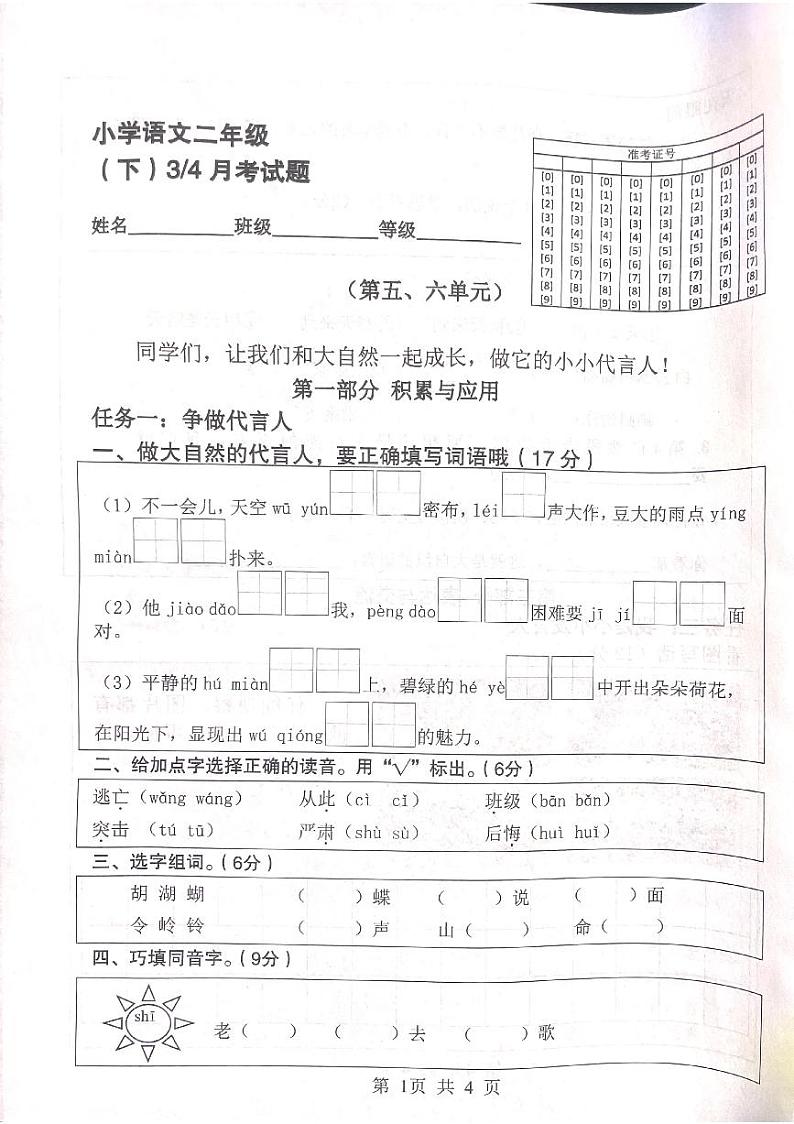 小学语文二年级
（下）3/4 月考试题
准考证号
[0] [0] [0] [0] [0] [0] [0] [0]
[1] [1] [1] [1] [1] [1] [1] [1]
[2] [2] [2] [2] [2] [2] [2] [2]
[3] [3] [3] [3] [3] [3] [3] [3]
[4] [4] [4] [4] [4] [4] [4] [4]
[5] [5] [5] [5] [5] [5] [5] [5]
[6] [6] [6] [6] [6] [6] [6] [6]
[7] [7] [7] [7] [7] [7] [7] [7]
[8] [8] [8] [8] [8] [8] [8] [8]
[9] [9] [9] [9] [9] [9] [9] [9]
姓名__________班级__________等级__________
（第五、六单元）
同学们，让我们和大自然一起成长，做它的小小代言人！
第一部分 积累与应用
任务一：争做代言人
一、做大自然的代言人，要正确填写词语哦（17 分）
（1）不一会儿，天空 wū yún 密布，léi 声大作，豆大的雨点 yíng
miàn 扑来。
（2）他 jiào dǎo 我，pèng dào 困难要 jī jí 面
对。
（3）平静的 hú miàn 上，碧绿的 hé yè 中开出朵朵荷花，
在阳光下，显现出 wú qióng 的魅力。
二、给加点字选择正确的读音。用“√”标出。（6分）
逃亡（wǎng wáng） 从此（cì cǐ） 班级（bān bǎn）
突击 （tú tū） 严肃（shù sù） 后悔（huì huǐ）
三、选字组词。（6分）
胡 湖 蝴 （ ）蝶 （ ）说 （ ）面
令 岭 铃 （ ）声 山（ ） 命（ ）
四、巧填同音字。（9分）
shī 老（ ） （ ）去 （ ）歌
第 1页 共 4 页